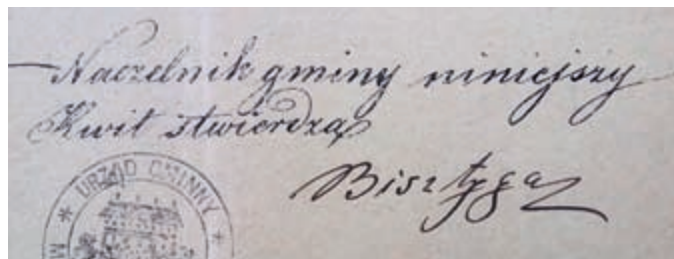 Naczelnik gminy niniejszy
Kwit stwierdza
Bisztyga
* URZĄD GMINNY *